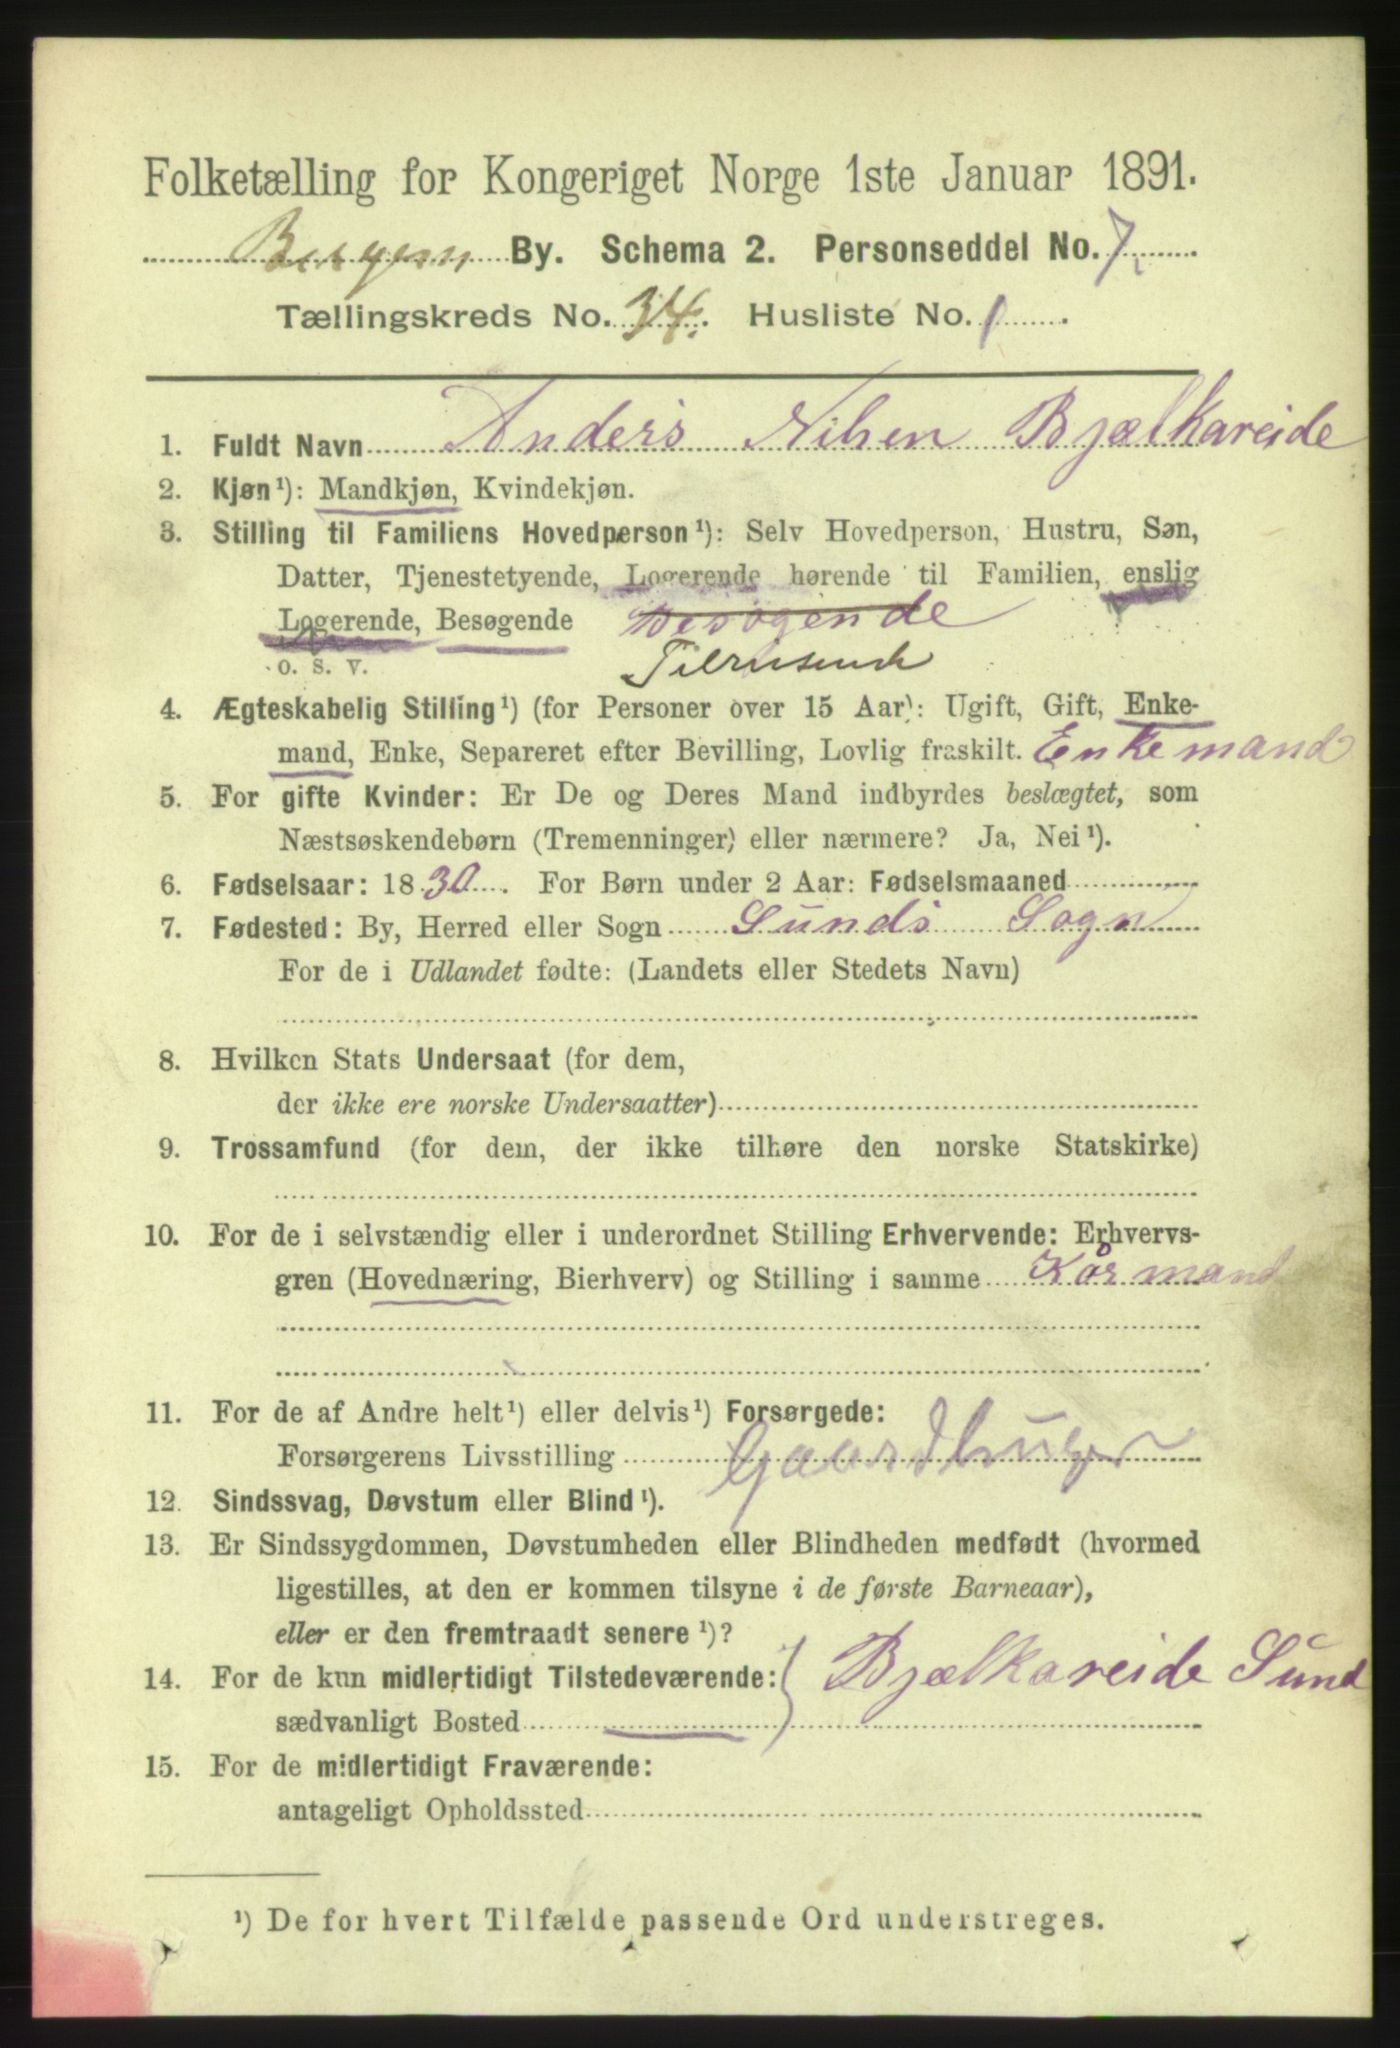 Folketælling for Kongeriget Norge 1ste Januar 1891.
Bergen By. Schema 2. Personseddel No. 7.
Tællingskreds No. 34. Husliste No. 1
1. Fuldt Navn Anders Nilsen Bjælkareide
2. Kjøn¹): Mandkjøn, Kvindekjøn.
3. Stilling til Familiens Hovedperson¹): Selv Hovedperson, Hustru, Søn,
Datter, Tjenestetyende, Logerende hørende til Familien, enslig
Logerende, Besøgende Besøgende
o. s. v. Tilreisende
4. Ægteskabelig Stilling¹) (for Personer over 15 Aar): Ugift, Gift, Enke-
mand, Enke, Separeret efter Bevilling, Lovlig fraskilt. Enkemand
5. For gifte Kvinder: Er De og Deres Mand indbyrdes beslægtet, som
Næstsøskendebørn (Tremenninger) eller nærmere? Ja, Nei¹).
6. Fødselsaar: 1830. For Børn under 2 Aar: Fødselsmaaned
7. Fødested: By, Herred eller Sogn Sunds Sogn
For de i Udlandet fødte: (Landets eller Stedets Navn)
8. Hvilken Stats Undersaat (for dem,
der ikke ere norske Undersaatter)
9. Trossamfund (for dem, der ikke tilhøre den norske Statskirke)
10. For de i selvstændig eller i underordnet Stilling Erhvervende: Erhvervs-
gren (Hovednæring, Bierhverv) og Stilling i samme Kårmand
11. For de af Andre helt¹) eller delvis¹) Forsørgede:
Forsørgerens Livsstilling Gaardbruger
12. Sindssvag, Døvstum eller Blind¹).
13. Er Sindssygdommen, Døvstumheden eller Blindheden medfødt (hvormed
ligestilles, at den er kommen tilsyne i de første Barneaar),
eller er den fremtraadt senere¹)?
14. For de kun midlertidigt Tilstedeværende: } Bjælkareide Sund
sædvanligt Bosted
15. For de midlertidigt Fraværende:
antageligt Opholdssted
¹) De for hvert Tilfælde passende Ord understreges.